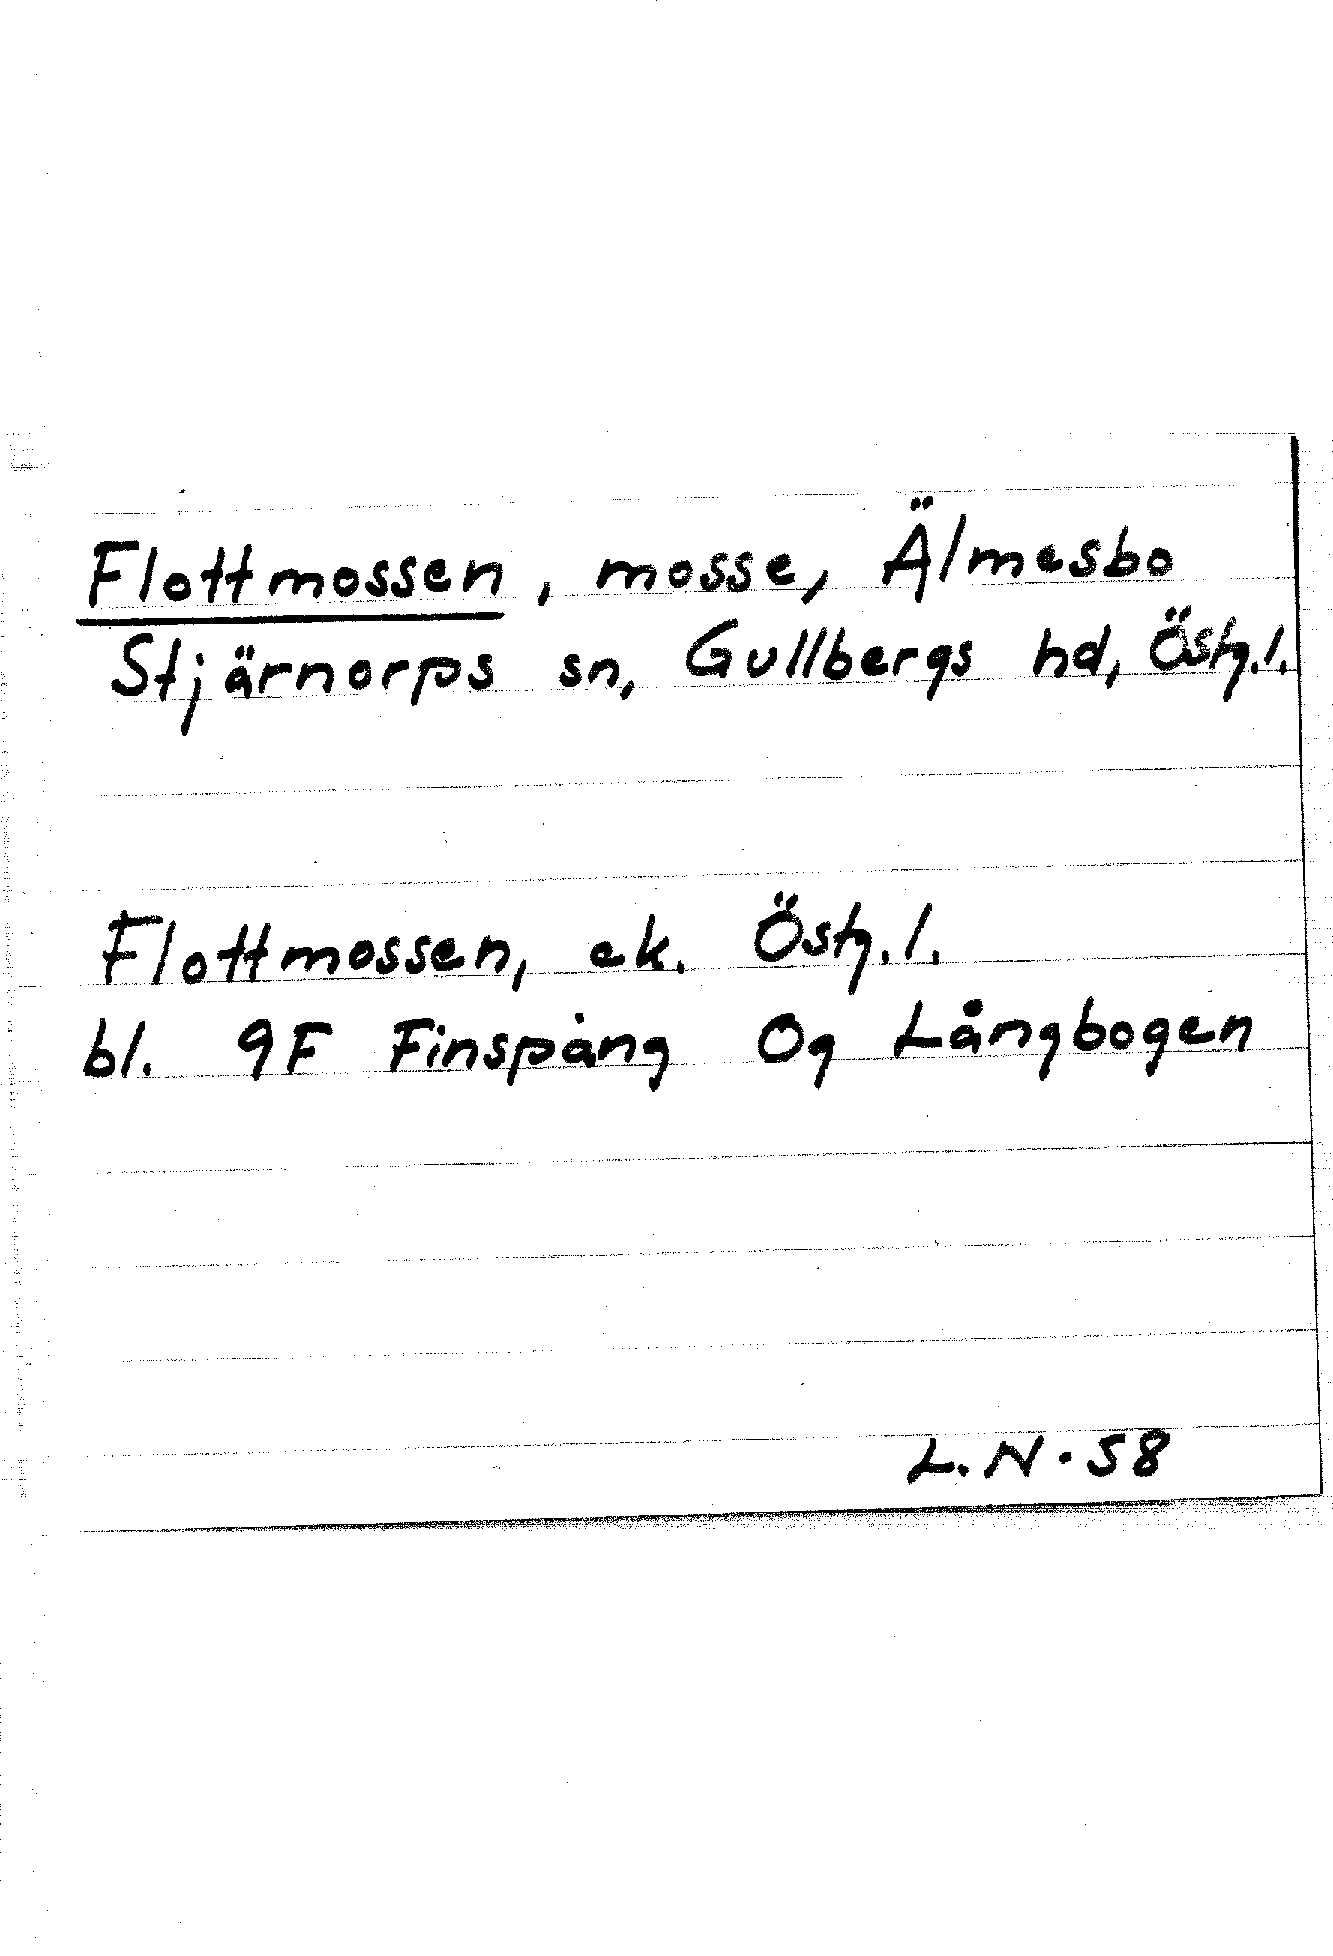 Flottmossen, mosse, Älmesbo
Stjärnorps sn, Gullbergs hd, Östg.l.
Flottmossen, ek. Östg.l.
bl. 9F Finspång 0g Långbogen
L.N. 58